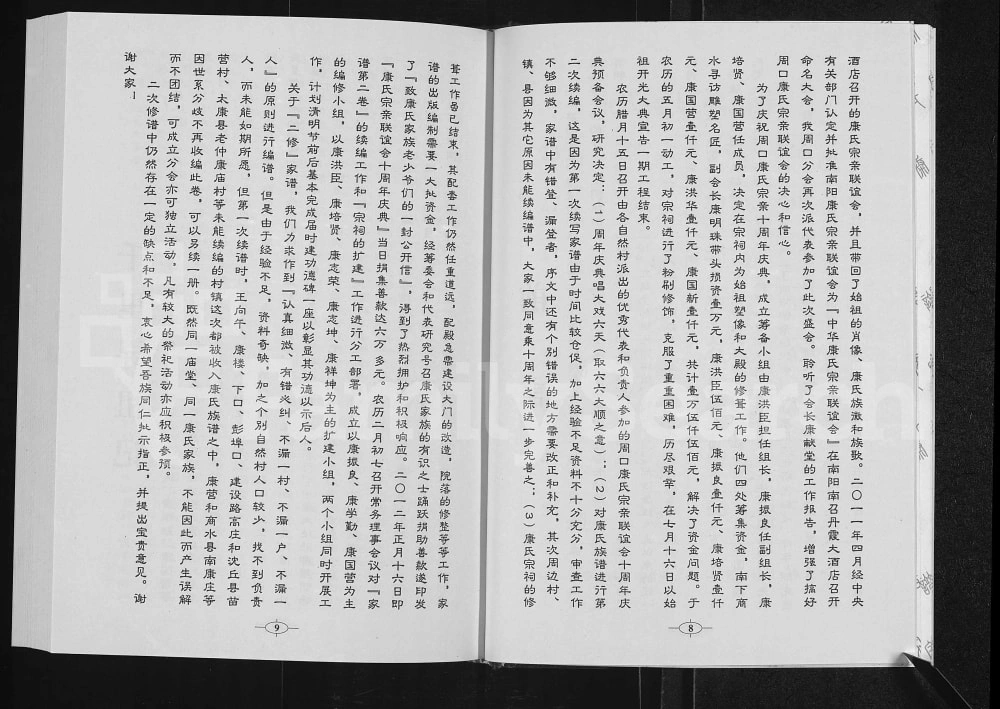 酒店召开的康氏宗亲联谊会，并且带回了始祖的肖像、康氏族徽和族歌。二〇一一年四月经中央
有关部门认定并批准南阳康氏宗亲联谊会为『中华康氏宗亲联谊会』在南阳南召丹霞大酒店召开
命名大会，我周口分会再次派代表参加了此次盛会。聆听了会长康献堂的工作报告，增强了搞好
周口康氏宗亲联谊会的决心和信心。
为了庆祝周口康氏宗亲十周年庆典，成立筹备小组由康洪臣担任组长，康振良任副组长，康
培贤、康国营任成员，决定在宗祠内为始祖塑像和大殿的修葺工作。他们四处筹集资金，南下商
水寻访雕塑名匠，副会长康明珠带头捐资壹万元，康洪臣伍佰元、康振良壹仟元、康培贤壹仟
元、康国营壹仟元、康洪华壹仟元、康国新壹仟元，共计壹万伍仟伍佰元，解决了资金问题。于
农历的五月初一动工，对宗祠进行了粉刷修饰，克服了重重困难，历尽艰辛，在七月十六日以始
祖开光大典宣告一期工程结束。
农历腊月十五日召开由各自然村派出的优秀代表和负责人参加的周口康氏宗亲联谊会十周年庆
典预备会议，研究决定：（1）周年庆典唱大戏六天（取六六大顺之意）；（2）对康氏族谱进行第
二次续编，这是因为第一次续写家谱由于时间比较仓促，加上经验不足资料不十分充分，审查工作
不够细微，家谱中有错登、漏登者，序文中还有个别错误的地方需要改正和补充，其次周边村、
镇、县因为其它原因未能续编谱中，大家一致同意乘十周年之际进一步完善之；（3）康氏宗祠的修
8
葺工作虽已结束，其配套工作仍然任重道远，配殿急需建设大门的改造，院落的修整等等工作，家
谱的出版编制需要一大批资金，经筹委会和代表研究号召康氏家族的有识之士踊跃捐助善款遂印发
了『致康氏家族老少爷们的一封公开信』，得到了热烈拥护和积极响应。二〇一二年正月十六日即
『康氏宗亲联谊会十周年庆典』当日捐集善款达六万多元。农历二月初七召开常务理事会议对『家
谱第二卷』的续编工作和『宗祠的扩建』工作进行分工部署，成立以康振良、康学勤、康国营为主
的编修小组，以康洪臣、康培贤、康志荣、康志坤、康祥坤为主的扩建小组，两个小组同时开展工
作，计划清明节前后基本完成届时建功德碑一座以彰显其功德以示后人。
关于『二修』家谱，我们力求作到『认真细微、有错必纠、不漏一村、不漏一户、不漏一
人』的原则进行编谱。但是由于经验不足，资料奇缺，加之个别自然村人口较少，找不到负责
人，而未能如期所愿，但第一次续谱时，王向午、康楼、下口、彭埠口、建设路高庄和沈丘县苗
营村、太康县老仲康庙村等未能续编的村镇这次都被收入康氏族谱之中，康营和商水县南康庄等
因世系分歧不再收编此卷，可以另续一册。既然同一庙堂、同一康氏家族，不能因此而产生误解
而不团结，可成立分会亦可独立活动，凡有较大的祭祀活动亦应积极参预。
二次修谱中仍然存在一定的缺点和不足，衷心希望吾族同仁批示指正，并提出宝贵意见。谢
谢大家！
9